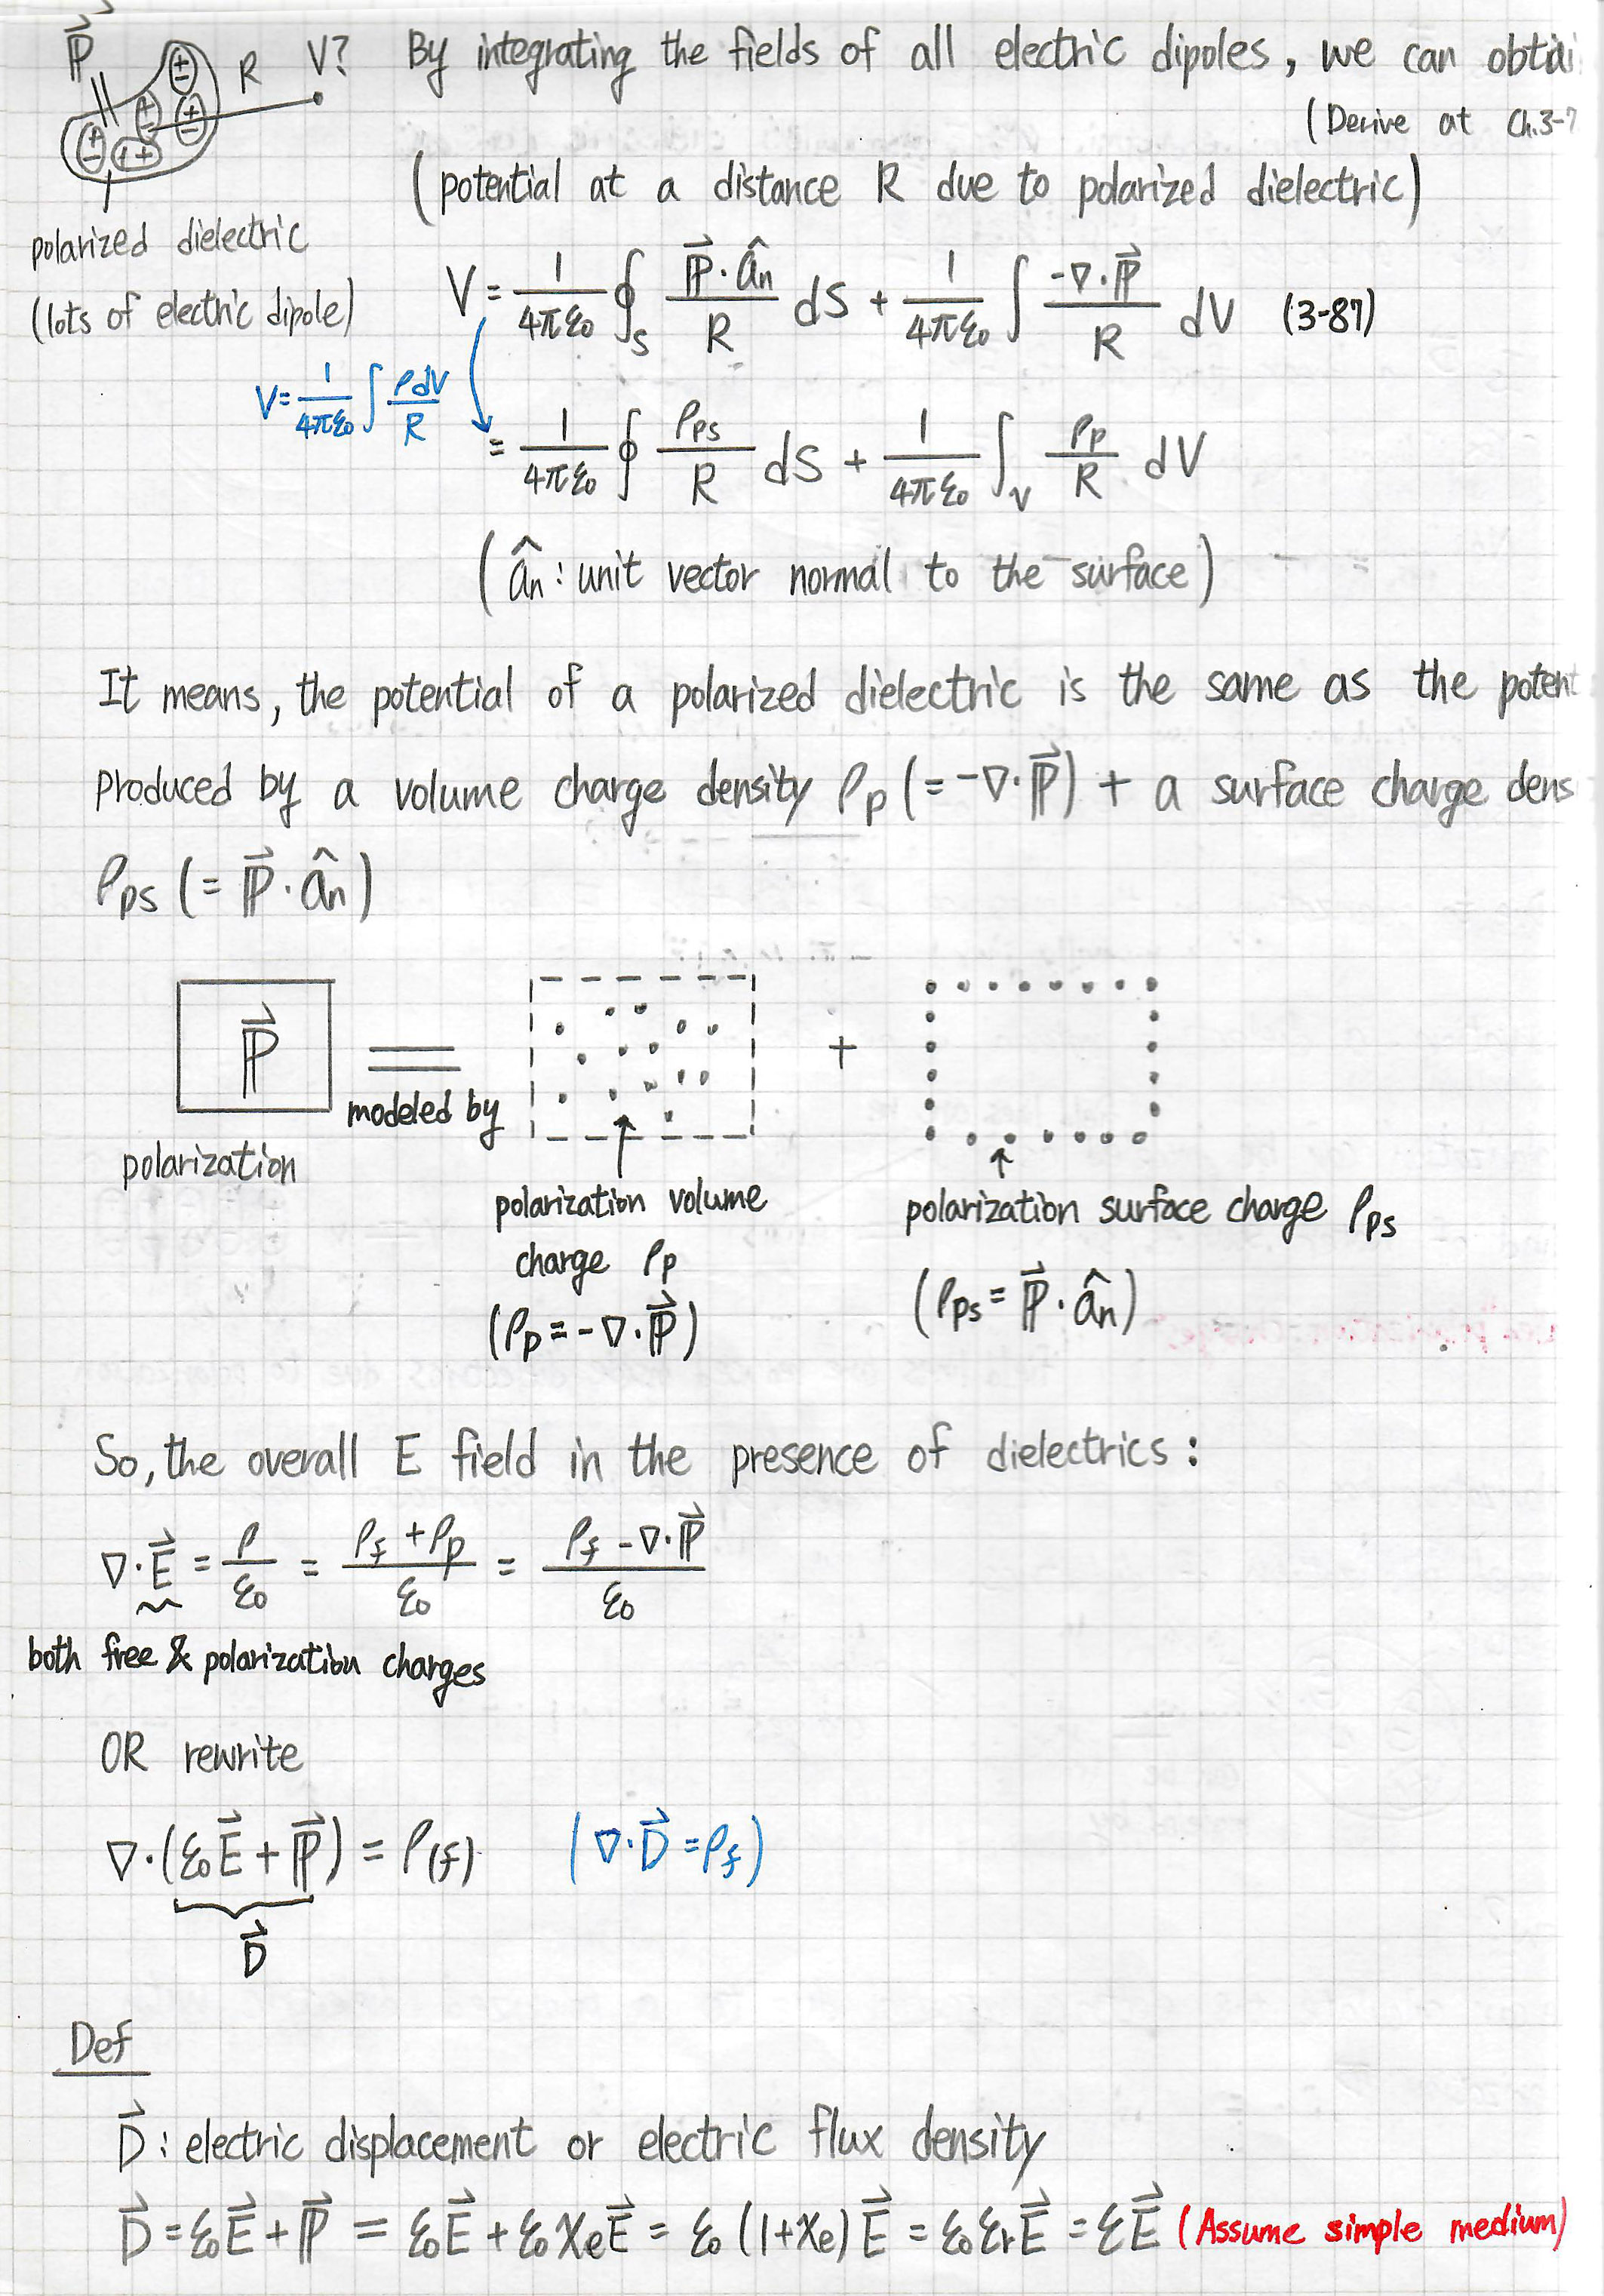 P⃗
R V? By integrating the fields of all electric dipoles, we can obtai
(Derive at Ch.3-7
(potential at a distance R due to polarized dielectric)
polarized dielectric
(lots of electric dipole)
V = 1/(4πε₀) ∮_S (P⃗·â_n)/R dS + 1/(4πε₀) ∫ (-∇·P⃗)/R dV (3-87)
V = 1/(4πε₀) ∫ ρdV/R
= 1/(4πε₀) ∮ ρ_ps/R dS + 1/(4πε₀) ∫_V ρ_p/R dV
(â_n : unit vector normal to the surface)
It means, the potential of a polarized dielectric is the same as the potent
produced by a volume charge density ρ_p (= -∇·P⃗) + a surface charge dens
ρ_ps (= P⃗·â_n)
P⃗
modeled by
+
polarization
polarization volume
charge ρ_p
(ρ_p = -∇·P⃗)
polarization surface charge ρ_ps
(ρ_ps = P⃗·â_n)
So, the overall E field in the presence of dielectrics :
∇·E⃗ = ρ/ε₀ = (ρ_f + ρ_p)/ε₀ = (ρ_f - ∇·P⃗)/ε₀
both free & polarization charges
OR rewrite
∇·(ε₀E⃗ + P⃗) = ρ_(f) (∇·D⃗ = ρ_f)
D⃗
Def
D⃗ : electric displacement or electric flux density
D⃗ = ε₀E⃗ + P⃗ = ε₀E⃗ + ε₀χ_eE⃗ = ε₀(1+χ_e)E⃗ = ε₀ε_rE⃗ = εE⃗ (Assume simple medium)